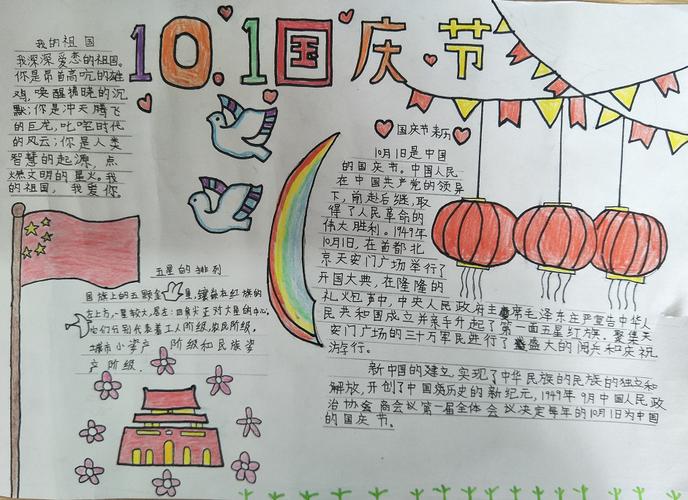 10.1国庆节
我的祖国
我深深爱恋的祖国。
你是昂首高吭的雄
鸡,唤醒拂晓的沉
默;你是冲天腾飞
的巨龙,叱咤时代
的风云;你是人类
智慧的起源,点
燃文明的星火。我
的祖国,我爱你。
五星的排列
国旗上的五颗金 星,镶嵌在红旗的
左上方,一星较大,居左;四 正对大星的中心,
它们分别代表着工人阶级,农民阶级,
城市小资产阶级和民族资
产阶级.
国庆节来历
10月1日是中国
的国庆节。中国人民
在中国共产党的领导
下,前赴后继,取
得了人民革命的
伟大胜利。1949年
10月1日,在首都北
京天安门广场举行了
开国大典,在隆隆的
礼火包声中,中央人民政府主席毛泽东庄严宣告中华人
民共和国成立并亲手升起了第一面五星红旗。聚集天
安门广场的三十万军民进行了盛大的阅兵和庆祝
游行。
新中国的建立,实现了中华民族的民族的独立和
解放,开创了中国历史的新纪元,1949年9月中国人民政
治协会商会议第一届全体会议决定每年的10月1为中国
的国庆节.